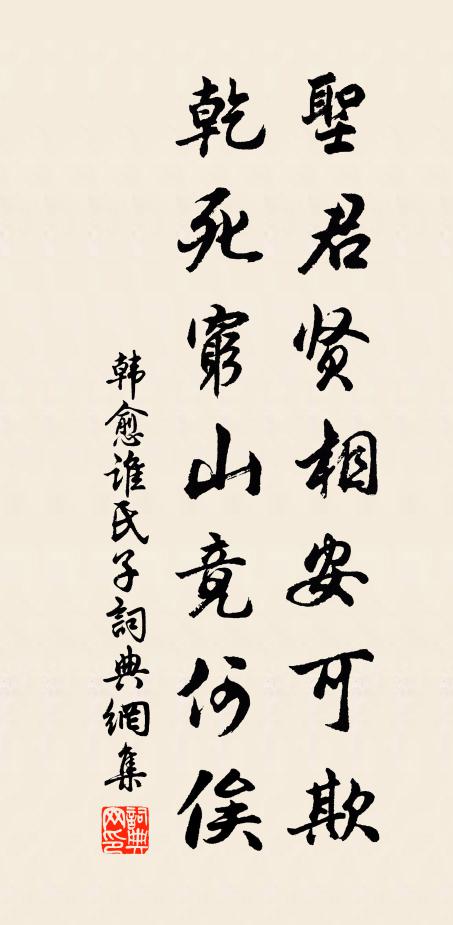 聖君贤相安可欺
乾死窮山竟何俟
韩愈谁氏子詞典網集
詞典网印